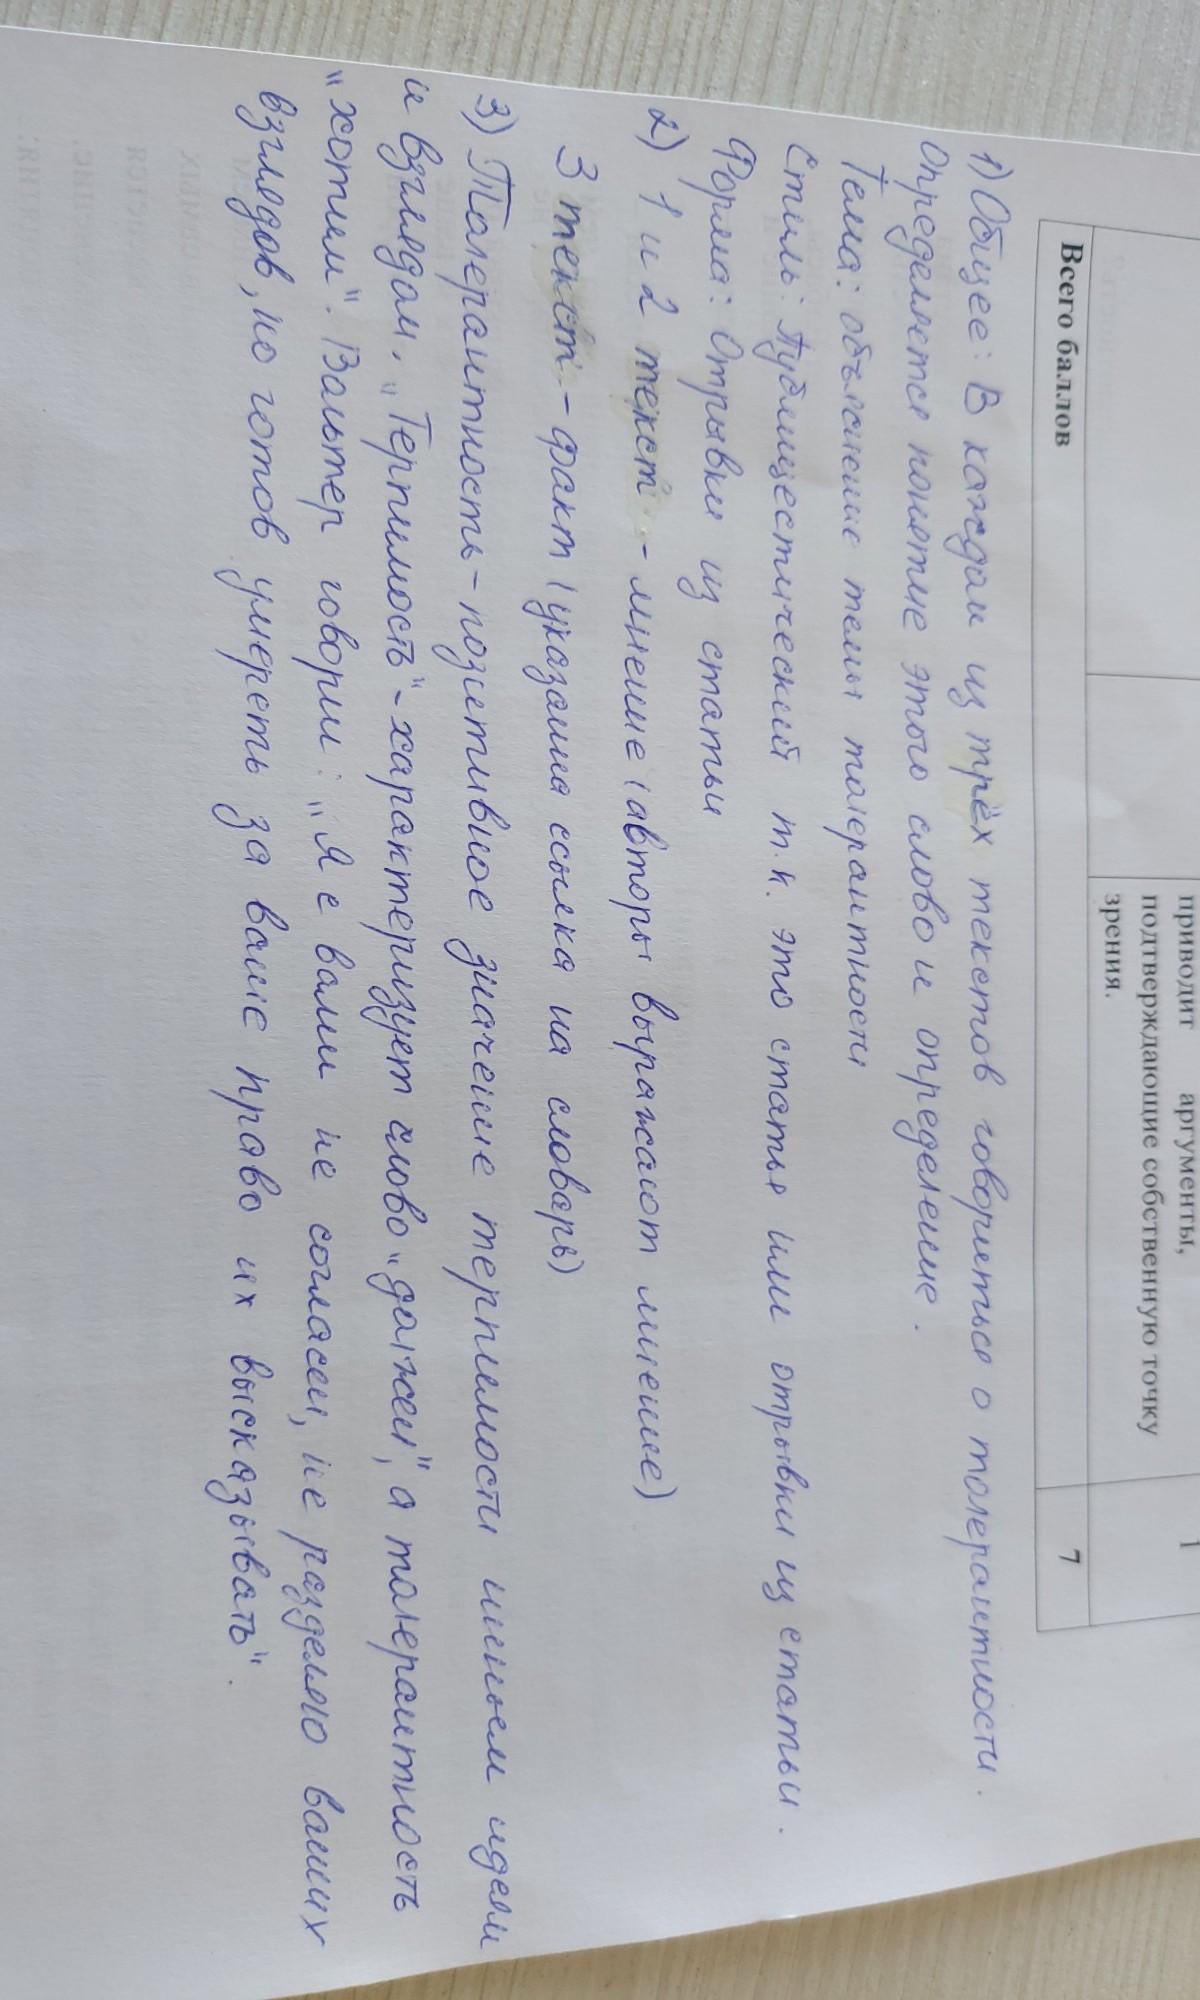 приводит аргументы,
подтверждающие собственную точку
зрения.
1
Всего баллов
7
1) Общее: В каждом из трёх текстов говориться о толерантности.
Определяется понятие этого слово и определение.
Тема: объяснение темы толерантности
Стиль: Публицестический т.к. это статья или отрывки из статьи.
Форма: Отрывки из статьи
2) 1 и 2 текст - мнение (авторы выражают мнение)
3 текст - факт (указанна ссылка на словарь)
3) Толерантность - позитивное значение терпимости инныем идеям
и взглядам. „Терпимость" - характеризует слово „должен", а толерантность
„хотим". Вольтер говорил: „Я с вами не согласен, не разделяю ваших
взглядов, но готов умереть за ваше право их высказывать".